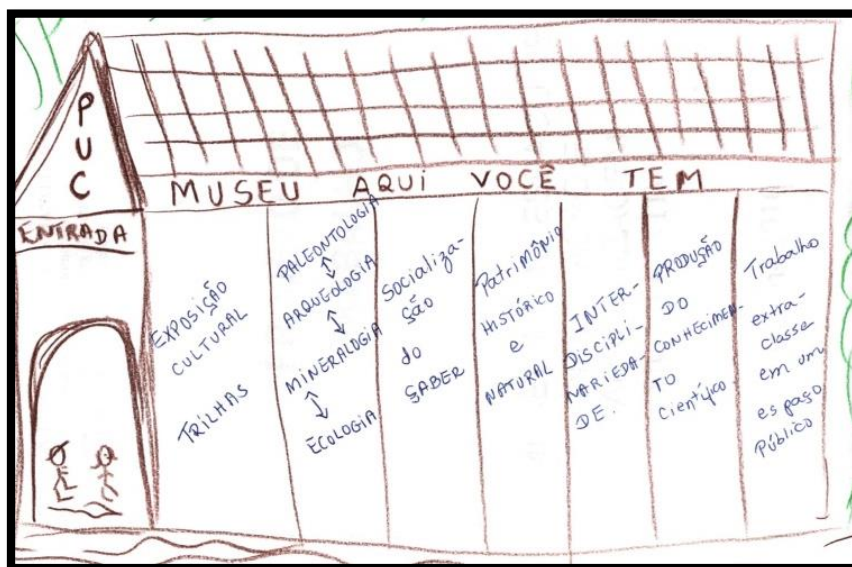 P
U
C
MUSEU AQUI VOCÊ TEM
ENTRADA
EXPOSIÇÃO
CULTURAL
TRILHAS
PALEONTOLOGIA
ARQUEOLOGIA
MINERALOGIA
ECOLOGIA
Socializa-
ção
do
SABER
Patrimônio
HISTÓRICO
e
NATURAL
INTER-
DISCIPLI-
NARIEDA-
DE.
PRODUÇÃO
DO
CONHECIMEN-
TO
Científico
Trabalho
extra-
classe
em um
espaço
Público